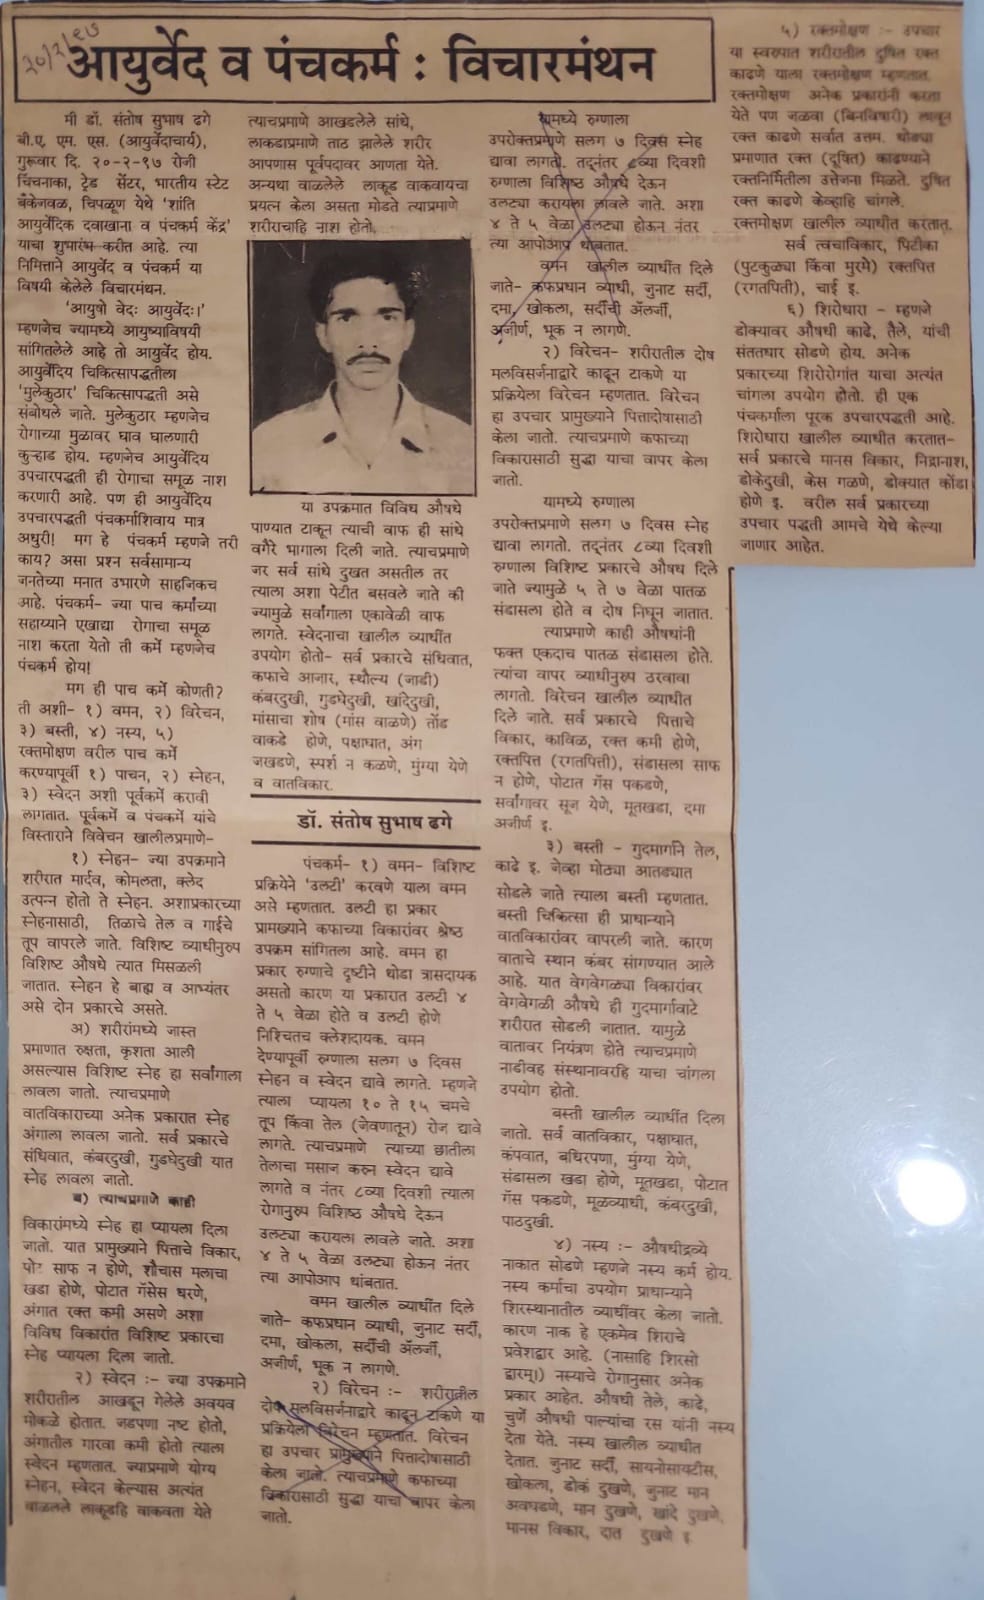 २०/२/९७
आयुर्वेद व पंचकर्म : विचारमंथन
मी डॉ. संतोष सुभाष ढगे
बी.ए. एम. एस. (आयुर्वेदाचार्य),
गुरूवार दि. २०-२-९७ रोजी
चिंचनाका, ट्रेड सेंटर, भारतीय स्टेट
बँकेजवळ, चिपळूण येथे 'शांति
आयुर्वेदिक दवाखाना व पंचकर्म केंद्र'
याचा शुभारंभ करीत आहे. त्या
निमित्ताने आयुर्वेद व पंचकर्म या
विषयी केलेले विचारमंथन.
'आयुषो वेदः आयुर्वेदः।'
म्हणजेच ज्यामध्ये आयुष्याविषयी
सांगितलेले आहे तो आयुर्वेद होय.
आयुर्वेदिय चिकित्सापद्धतीला
'मुलेकुठार' चिकित्सापद्धती असे
संबोधले जाते. मुलेकुठार म्हणजेच
रोगाच्या मुळावर घाव घालणारी
कुऱ्हाड होय. म्हणजेच आयुर्वेदिय
उपचारपद्धती ही रोगाचा समूळ नाश
करणारी आहे. पण ही आयुर्वेदिय
उपचारपद्धती पंचकर्माशिवाय मात्र
अधुरी! मग हे पंचकर्म म्हणजे तरी
काय? असा प्रश्न सर्वसामान्य
जनतेच्या मनात उभारणे साहजिकच
आहे. पंचकर्म- ज्या पाच कर्मांच्या
सहाय्याने एखाद्या रोगाचा समूळ
नाश करता येतो ती कर्मे म्हणजेच
पंचकर्म होय!
मग ही पाच कर्मे कोणती?
ती अशी- १) वमन, २) विरेचन,
३) बस्ती, ४) नस्य, ५)
रक्तमोक्षण वरील पाच कर्मे
करण्यापूर्वी १) पाचन, २) स्नेहन,
३) स्वेदन अशी पूर्वकर्मे करावी
लागतात. पूर्वकर्मे व पंचकर्मे यांचे
विस्ताराने विवेचन खालीलप्रमाणे-
१) स्नेहन- ज्या उपक्रमाने
शरीरात मार्दव, कोमलता, क्लेद
उत्पन्न होतो ते स्नेहन. अशाप्रकारच्या
स्नेहनासाठी, तिळाचे तेल व गाईचे
तूप वापरले जाते. विशिष्ट व्याधीनुरुप
विशिष्ट औषधे त्यात मिसळली
जातात. स्नेहन हे बाह्य व आभ्यंतर
असे दोन प्रकारचे असते.
अ) शरीरांमध्ये जास्त
प्रमाणात रुक्षता, कृशता आली
असल्यास विशिष्ट स्नेह हा सर्वांगाला
लावला जातो. त्याचप्रमाणे
वातविकाराच्या अनेक प्रकारात स्नेह
अंगाला लावला जातो. सर्व प्रकारचे
संधिवात, कंबरदुखी, गुडघेदुखी यात
स्नेह लावला जातो.
ब) त्याचप्रमाणे काही
विकारांमध्ये स्नेह हा प्यायला दिला
जातो. यात प्रामुख्याने पित्ताचे विकार,
पोट साफ न होणे, शौचास मलाचा
खडा होणे, पोटात गॅसेस धरणे,
अंगात रक्त कमी असणे अशा
विविध विकारांत विशिष्ट प्रकारचा
स्नेह प्यायला दिला जातो.
२) स्वेदन :- ज्या उपक्रमाने
शरीरातील आखडून गेलेले अवयव
मोकळे होतात. जडपणा नष्ट होतो,
अंगातील गारवा कमी होतो त्याला
स्वेदन म्हणतात. ज्याप्रमाणे योग्य
स्नेहन, स्वेदन केल्यास अत्यंत
वाळलले लाकूडहि वाकवता येते
त्याचप्रमाणे आखडलेले सांधे,
लाकडाप्रमाणे ताठ झालेले शरीर
आपणास पूर्वपदावर आणता येते.
अन्यथा वाळलेले लाकूड वाकवायचा
प्रयत्न केला असता मोडते त्याप्रमाणे
शरीराचाहि नाश होतो.
या उपक्रमात विविध औषधे
पाण्यात टाकून त्याची वाफ ही सांधे
वगैरे भागाला दिली जाते. त्याचप्रमाणे
जर सर्व सांधे दुखत असतील तर
त्याला अशा पेटीत बसवले जाते की
ज्यामुळे सर्वांगाला एकावेळी वाफ
लागते. स्वेदनाचा खालील व्याधींत
उपयोग होतो- सर्व प्रकारचे संधिवात,
कफाचे आजार, स्थौल्य (जाडी)
कंबरदुखी, गुडघेदुखी, खांदेदुखी,
मांसाचा शोष (मांस वाळणे) तोंड
वाकडे होणे, पक्षाघात, अंग
जखडणे, स्पर्श न कळणे, मुंग्या येणे
व वातविकार.
डॉ. संतोष सुभाष ढगे
पंचकर्म- १) वमन- विशिष्ट
प्रक्रियेने 'उलटी' करवणे याला वमन
असे म्हणतात. उलटी हा प्रकार
प्रामख्याने कफाच्या विकारांवर श्रेष्ठ
उपक्रम सांगितला आहे. वमन हा
प्रकार रुग्णाचे दृष्टीने थोडा त्रासदायक
असतो कारण या प्रकारात उलटी ४
ते ५ वेळा होते व उलटी होणे
निश्चितच क्लेशदायक. वमन
देण्यापूर्वी रुग्णाला सलग ७ दिवस
स्नेहन व स्वेदन द्यावे लागते. म्हणजे
त्याला प्यायला १० ते १५ चमचे
तूप किंवा तेल (जेवणातून) रोज द्यावे
लागते. त्याचप्रमाणे त्याच्या छातीला
तेलाचा मसाज करुन स्वेदन द्यावे
लागते व नंतर ८व्या दिवशी त्याला
रोगानुरुप विशिष्ठ औषधे देऊन
उलट्या करायला लावले जाते. अशा
४ ते ५ वेळा उलट्या होऊन नंतर
त्या आपोआप थांबतात.
वमन खालील व्याधींत दिले
जाते- कफप्रधान व्याधी, जुनाट सर्दी,
दमा, खोकला, सर्दीची ॲलर्जी,
अजीर्ण, भूक न लागणे.
२) विरेचन :- शरीरातील
दोष मलविसर्जनाद्वारे काढून टाकणे या
प्रक्रियेला विरेचन म्हणतात. विरेचन
हा उपचार प्रामुख्याने पित्तादोषासाठी
केला जातो. त्याचप्रमाणे कफाच्या
विकारासाठी सुद्धा याचा वापर केला
जातो.
यामध्ये रुग्णाला
उपरोक्तप्रमाणे सलग ७ दिवस स्नेह
द्यावा लागतो. तद्नंतर ८व्या दिवशी
रुग्णाला विशिष्ठ औषधे देऊन
उलट्या करायला लावले जाते. अशा
४ ते ५ वेळा उलट्या होऊन नंतर
त्या आपोआप थांबतात.
वमन खालील व्याधींत दिले
जाते- कफप्रधान व्याधी, जुनाट सर्दी,
दमा, खोकला, सर्दीची ॲलर्जी,
अजीर्ण, भूक न लागणे.
२) विरेचन- शरीरातील दोष
मलविसर्जनाद्वारे काढून टाकणे या
प्रक्रियेला विरेचन म्हणतात. विरेचन
हा उपचार प्रामुख्याने पित्तादोषासाठी
केला जातो. त्याचप्रमाणे कफाच्या
विकारासाठी सुद्धा याचा वापर केला
जातो.
यामध्ये रुग्णाला
उपरोक्तप्रमाणे सलग ७ दिवस स्नेह
द्यावा लागतो. तद्नंतर ८व्या दिवशी
रुग्णाला विशिष्ट प्रकारचे औषध दिले
जाते ज्यामुळे ५ ते ७ वेळा पातळ
संडासला होते व दोष निघून जातात.
त्याप्रमाणे काही औषधांनी
फक्त एकदाच पातळ संडासला होते.
त्यांचा वापर व्याधीनुरुप ठरवावा
लागतो. विरेचन खालील व्याधीत
दिले जाते. सर्व प्रकारचे पित्ताचे
विकार, काविळ, रक्त कमी होणे,
रक्तपित्त (रगतपित्ती), संडासला साफ
न होणे, पोटात गॅस पकडणे,
सर्वांगावर सूज येणे, मूतखडा, दमा
अजीर्ण इ.
३) बस्ती - गुदमार्गाने तेल,
काढे इ. जेव्हा मोठ्या आतड्यात
सोडले जाते त्याला बस्ती म्हणतात.
बस्ती चिकित्सा ही प्राधान्याने
वातविकारांवर वापरली जाते. कारण
वाताचे स्थान कंबर सांगण्यात आले
आहे. यात वेगवेगळ्या विकारांवर
वेगवेगळी औषधे ही गुदमार्गावाटे
शरीरात सोडली जातात. यामुळे
वातावर नियंत्रण होते त्याचप्रमाणे
नाडीवह संस्थानावरहि याचा चांगला
उपयोग होतो.
बस्ती खालील व्याधींत दिला
जातो. सर्व वातविकार, पक्षाघात,
कंपवात, बधिरपणा, मुंग्या येणे,
संडासला खडा होणे, मूतखडा, पोटात
गॅस पकडणे, मूळव्याधी, कंबरदुखी,
पाठदुखी.
४) नस्य :- औषधीद्रव्ये
नाकात सोडणे म्हणजे नस्य कर्म होय.
नस्य कर्माचा उपयोग प्राधान्याने
शिरस्थानातील व्याधींवर केला जातो.
कारण नाक हे एकमेव शिराचे
प्रवेशद्वार आहे. (नासाहि शिरसो
द्वारम्।) नस्याचे रोगानुसार अनेक
प्रकार आहेत. औषधी तेले, काढे,
चुर्णे औषधी पाल्यांचा रस यांनी नस्य
देता येते. नस्य खालील व्याधीत
देतात. जुनाट सर्दी, सायनोसायटीस,
खोकला, डोकं दुखणे, जुनाट मान
अवघडणे, मान दुखणे, खांदे दुखणे,
मानस विकार, दात दुखणे इ.
५) रक्तमोक्षण :- उपचार
या स्वरुपात शरीरातील दुषित रक्त
काढणे याला रक्तमोक्षण म्हणतात.
रक्तमोक्षण अनेक प्रकारांनी करता
येते पण जळवा (बिनविषारी) लावून
रक्त काढणे सर्वात उत्तम. थोड्या
प्रमाणात रक्त (दूषित) काढण्याने
रक्तनिर्मितीला उत्तेजना मिळते. दुषित
रक्त काढणे केव्हाहि चांगले.
रक्तमोक्षण खालील व्याधीत करतात.
सर्व त्वचाविकार, पिटीका
(पुटकुळ्या किंवा मुरमे) रक्तपित्त
(रगतपिती), चाई इ.
६) शिरोधारा - म्हणजे
डोक्यावर औषधी काढे, तैले, यांची
संततधार सोडणे होय. अनेक
प्रकारच्या शिरोरोगांत याचा अत्यंत
चांगला उपयोग होतो. ही एक
पंचकर्माला पूरक उपचारपद्धती आहे.
शिरोधारा खालील व्याधीत करतात-
सर्व प्रकारचे मानस विकार, निद्रानाश,
डोकेदुखी, केस गळणे, डोक्यात कोंडा
होणे इ. वरील सर्व प्रकारच्या
उपचार पद्धती आमचे येथे केल्या
जाणार आहेत.